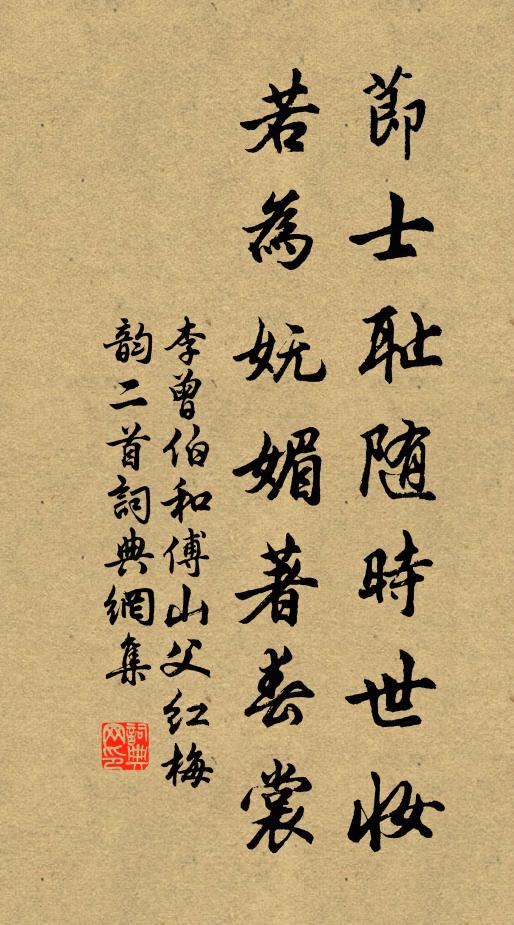 節士耻随時世妝
若為妩媚著春裳
李曾伯和傅山父红梅
韵二首詞典網集
詞典網印